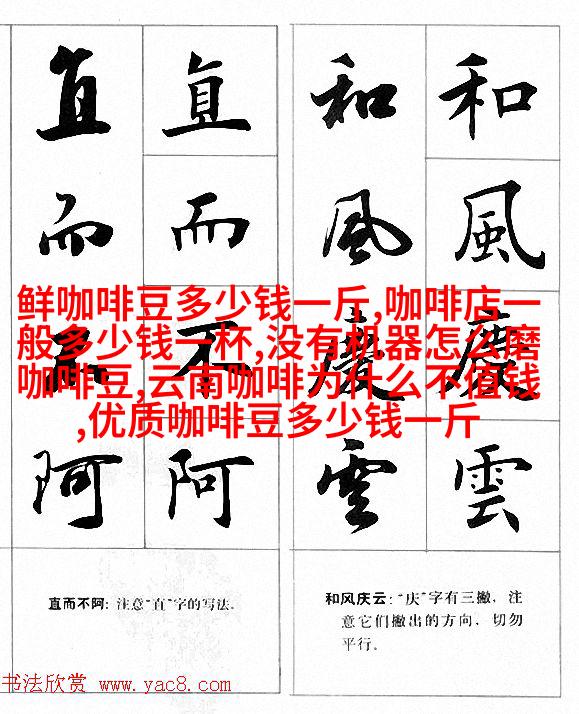 和風慶雲
和風慶雲
和风庆云:“庆”字有三撇, 注
意它们撇出的方向, 切勿
平行。
直而不阿
直而不阿
直而不阿: 注意“直”字的写法.
鲜咖啡豆多少钱一斤,咖啡店一
般多少钱一杯,没有机器怎么磨
咖啡豆,云南咖啡为什么不值钱
,优质咖啡豆多少钱一斤
书法欣赏 www.yac8.com